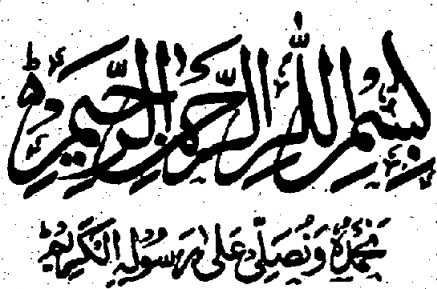 بِسْمِ اللهِ الرَّحْمٰنِ الرَّحِیْمِ
نَحْمَدُہٗ وَنُصَلِّیْ عَلٰی رَسُوْلِہِ الْکَرِیْمِ